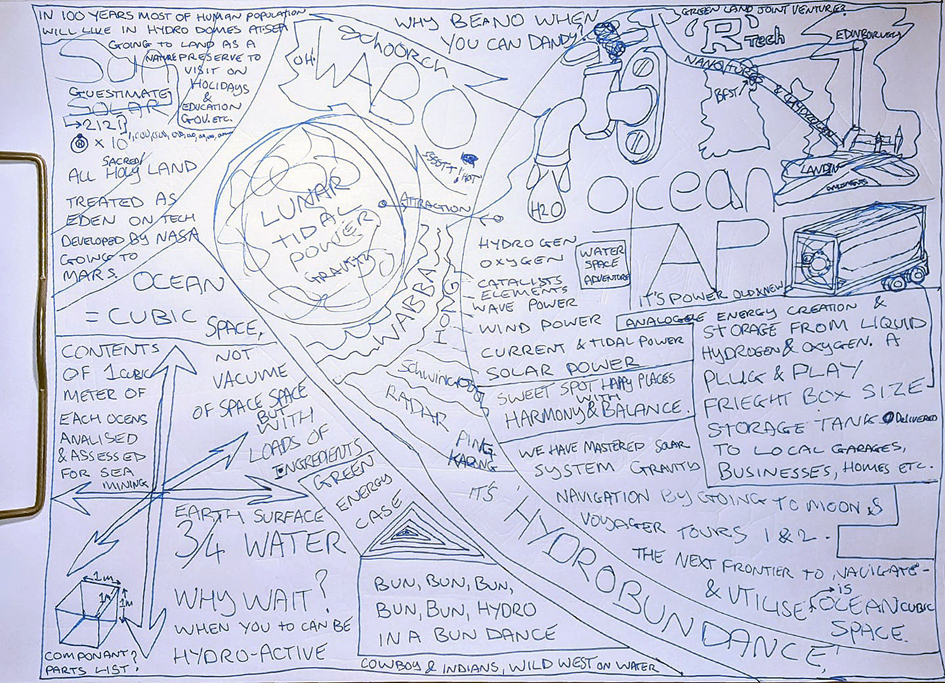 IN 100 YEARS MOST OF HUMAN POPULATION
WILL LIVE IN HYDRO DOMES AT SEA
GOING TO LAND AS A
NATURE PRESERVE TO
VISIT ON
HOLIDAYS
&
EDUCATION
GOV. ETC.
GUESTIMATE
SOLAR
SACRED/
ALL HOLY LAND
TREATED AS
EDEN ON TECH
DEVELOPED BY NASA
GOING TO
MARS.
OCEAN
= CUBIC SPACE,
NOT
VACUME
OF SPACE SPACE
BUT
WITH
LOADS OF
INGREDIENTS
CONTENTS
OF 1 CUBIC
METER OF
EACH OCENS
ANALISED
& ASSESSED
FOR SEA
MINING
EARTH SURFACE
3/4 WATER
WHY WAIT?
WHEN YOU TO CAN BE
HYDRO-ACTIVE
1m
1m
1m
COMPONANT?
PARTS LIST!
GREEN
ENERGY
CASE
BUN, BUN, BUN,
BUN, BUN, HYDRO
IN A BUN DANCE
COWBOY & INDIANS, WILD WEST ON WATER
WHY BEANO WHEN
YOU CAN DANDY?
SCHOORCH
OH
WABO
LUNAR
TIDAL
POWER
GRAVITY
ATTRACTION
WABBA
RADAR
PING
KARNG
IT'S
HYDROBUNDANCE!
GREEN LAND JOINT VENTURE?
'R' TECH
EDINBURGH
H2O
OCEAN
TAP
IT'S POWER OLD & NEW
HYDROGEN
OXYGEN
CATALISTS
- ELEMENTS
WAVE POWER
WIND POWER
CURRENT & TIDAL POWER
SOLAR POWER
WATER
SPACE
ADVENTURE
SWEET SPOT HAPPY PLACES
WITH
HARMONY & BALANCE.
ENERGY CREATION &
STORAGE FROM LIQUID
HYDROGEN & OXYGEN. A
PLUG & PLAY
FRIEGHT BOX SIZE
STORAGE TANK. DELIVERED
TO LOCAL GARAGES,
BUSINESSES, HOMES ETC.
WE HAVE MASTERED SOLAR
SYSTEM GRAVITY
NAVIGATION BY GOING TO MOON &
VOYAGER TOURS 1 & 2.
THE NEXT FRONTIER TO NAVIGATE
& UTILISE IS OCEAN CUBIC
SPACE.